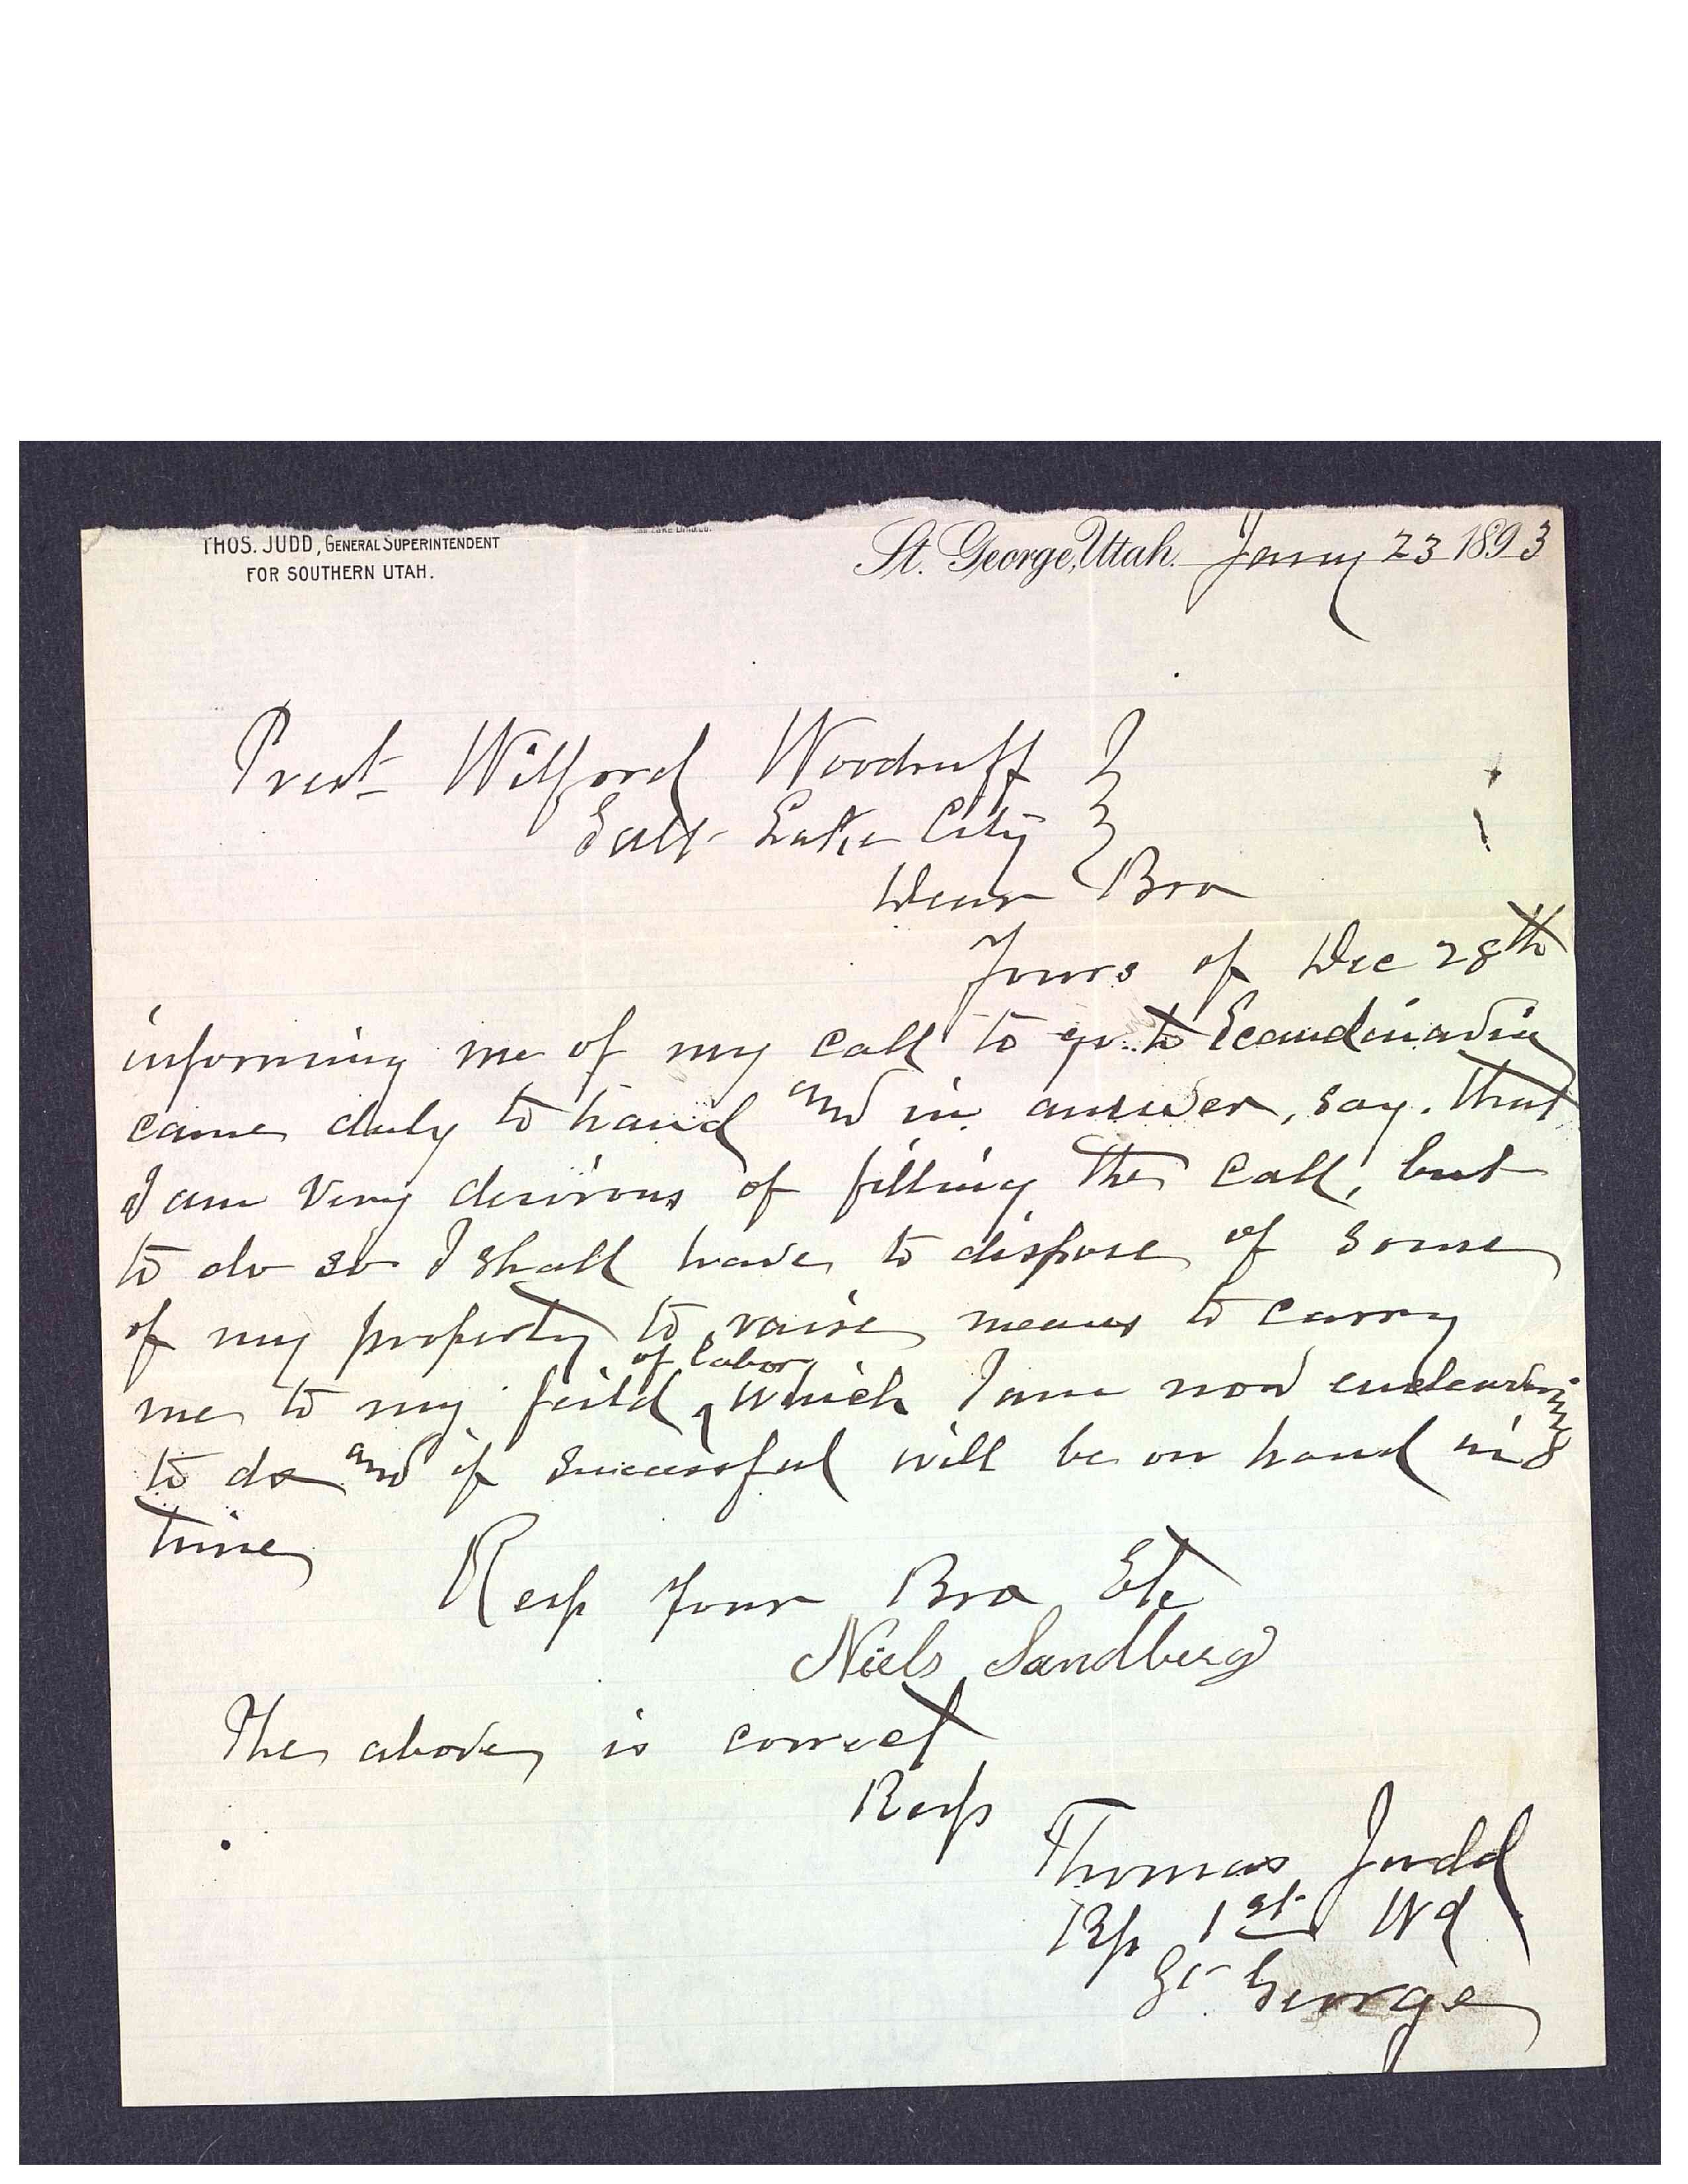 THOS. JUDD, GENERAL SUPERINTENDENT
FOR SOUTHERN UTAH.
St. George, Utah. Jany 23 1893
Prest Wilford Woodruff
Salt Lake City
Dear Bro
Yours of Dec 28th
informing me of my call to go to Scandinavia
came duly to hand and in answer, say. that
I am very desirous of filling the call, but
to do so I shall have to dispose of some
of my property to raise means to carry
me to my feild of labor which I am now endeavoring
to do and if successful will be on hand in
time
Resp Your Bro Etc
Niels Sandberg
The above is correct
Resp
Thomas Judd
Bp 1st Wd
St. George